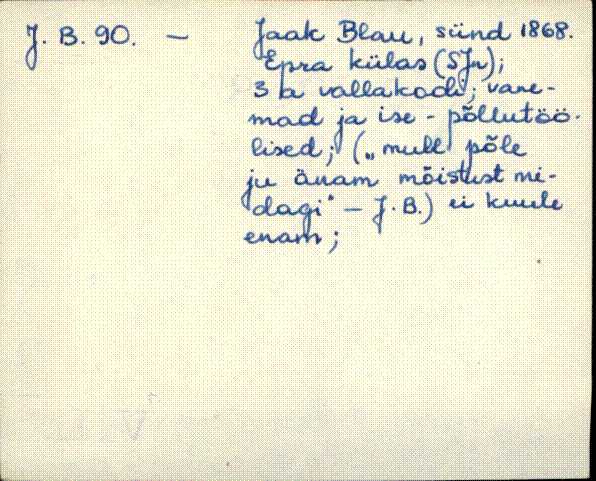 J. B. 90. — Jaak Blau, sünd 1868.
Epra külas (SJn);
3 a vallakooli; vane-
mad ja ise - põllutöö-
lised; („mull põle
ju änam mõistust mi-
dagi" — J. B.) ei kuule
enam;